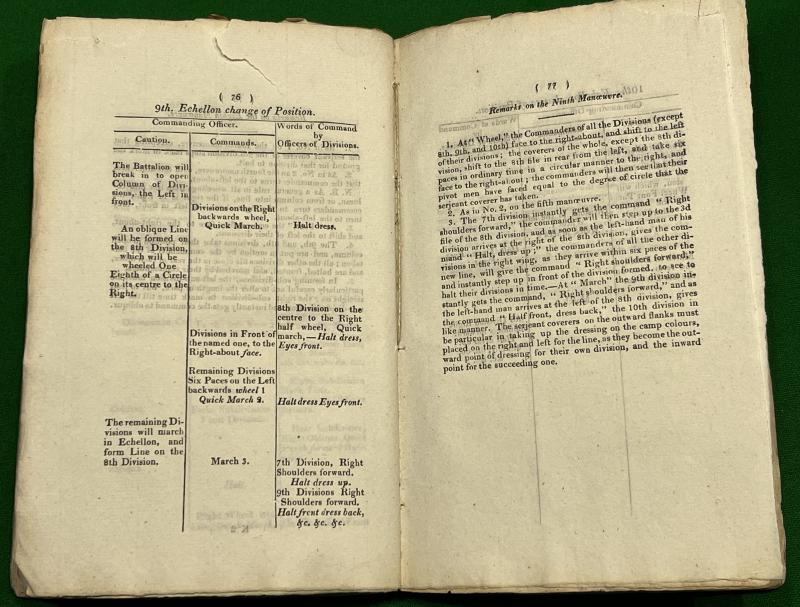 ( 76 )
9th. Echellon change of Position.
Commanding Officer.
Words of Command
by
Officers of Divisions.
Caution.
Commands.
The Battalion will
break in to open
Column of Divi-
sions, the Left in
front.
Divisions on the Right
backwards wheel,
Quick March.
Halt dress.
An oblique Line
will be formed on
the 8th Division,
which will be
wheeled One
Eighth of a Circle
on its centre to the
Right.
8th Division on the
centre to the Right
half wheel, Quick
march,—Halt dress,
Eyes front.
Divisions in Front of
the named one, to the
Right-about face.
Remaining Divisions
Six Paces on the Left
backwards wheel 1
Quick March 2.
Halt dress Eyes front.
The remaining Di-
visions will march
in Echellon, and
form Line on the
8th Division.
March 3.
7th Division, Right
Shoulders forward.
Halt dress up.
9th Divisions Right
Shoulders forward.
Halt front dress back,
&c. &c. &c.
( 77 )
Remarks on the Ninth Manœuvre.
1. At "Wheel," the Commanders of all the Divisions (except
8th, 9th, and 10th) face to the right-about, and shift to the left
of their divisions; the coverers of the whole, except the 8th di-
vision, shift to the 8th file in rear from the left, and take six
paces in ordinary time in a circular manner to the right, and
face to the right-about; the commanders will then see that their
pivot men have faced equal to the degree of circle that the
serjeant coverer has taken.
2. As in No. 2, on the fifth manœuvre.
3. The 7th division instantly gets the command " Right
shoulders forward," the commander will then step up to the 3d
file of the 8th division, and as soon as the left-hand man of his
division arrives at the right of the 8th division, gives the com-
mand " Halt, dress up;" the commanders of all the other di-
visions in the right wing, as they arrive within six paces of the
new line, will give the command " Right shoulders forward,"
and instantly step up in front of the division formed, to see to
halt their divisions in time.—At " March" the 9th division in-
stantly gets the command, " Right shoulders forward," and as
the left-hand man arrives at the left of the 8th division, gives
the command " Half front, dress back," the 10th division in
like manner. The serjeant coverers on the outward flanks must
be particular in taking up the dressing on the camp colours,
placed on the right and left for the line, as they become the out-
ward point of dressing for their own division, and the inward
point for the succeeding one.